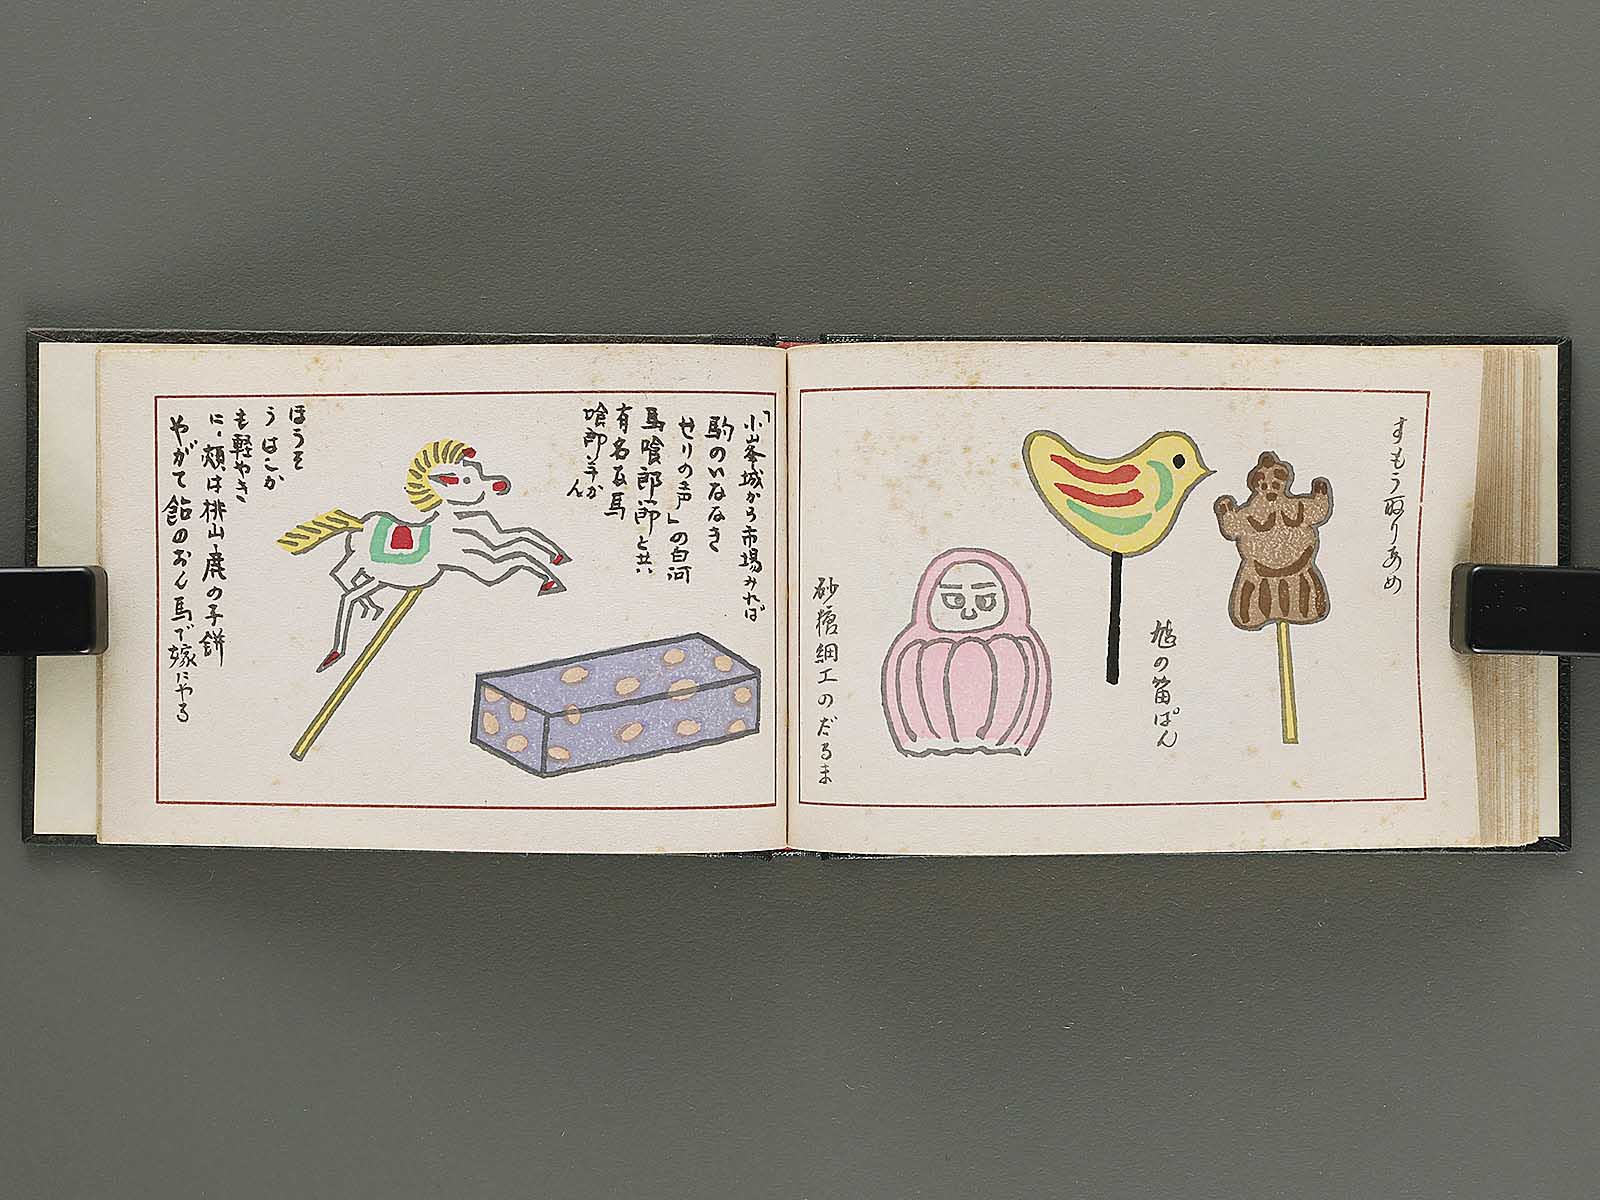 すもう取りあめ
鳩の笛ぱん
砂糖細工のだるま
「小峯城から市場みれば
駒のいななき
せりの声」の白河
馬喰郎節と共
有名な馬
喰郎羊か
ん
ほうそ
うはしか
も軽やき
に、頬は桃山鹿の子餅
やがて飴のおん馬で嫁にやる